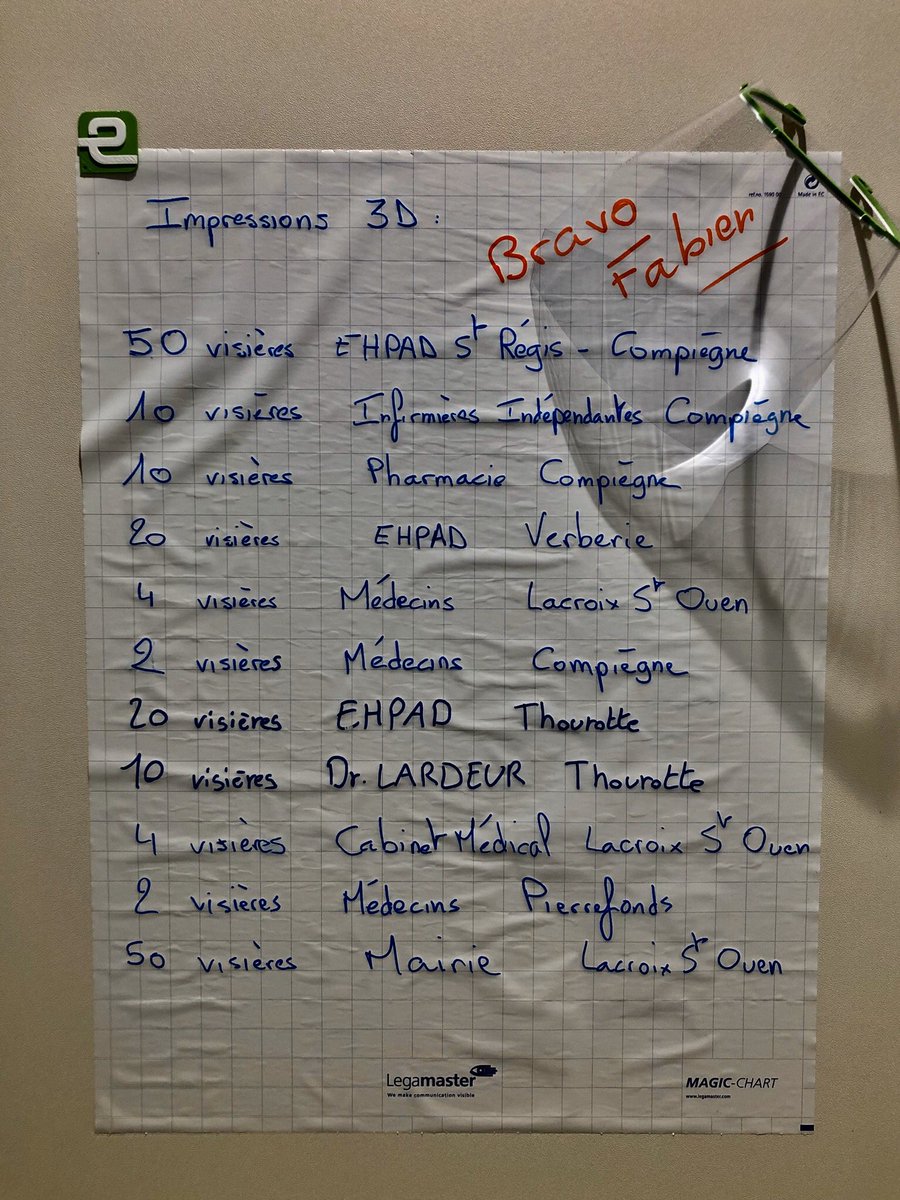 e
ref.no. 1590 00
Made in EC
Impressions 3D :
Bravo
Fabien
50 visières EHPAD St Régis - Compiègne
10 visières Infirmières Indépendantes Compiègne
10 visières Pharmacie Compiègne
20 visières EHPAD Verberie
4 visières Médecins Lacroix St Ouen
2 visières Médecins Compiègne
20 visières EHPAD Thourotte
10 visières Dr. LARDEUR Thourotte
4 visières Cabinet Médical Lacroix St Ouen
2 visières Médecins Pierrefonds
50 visières Mairie Lacroix St Ouen
Legamaster
We make communication visible
MAGIC-CHART
www.legamaster.com